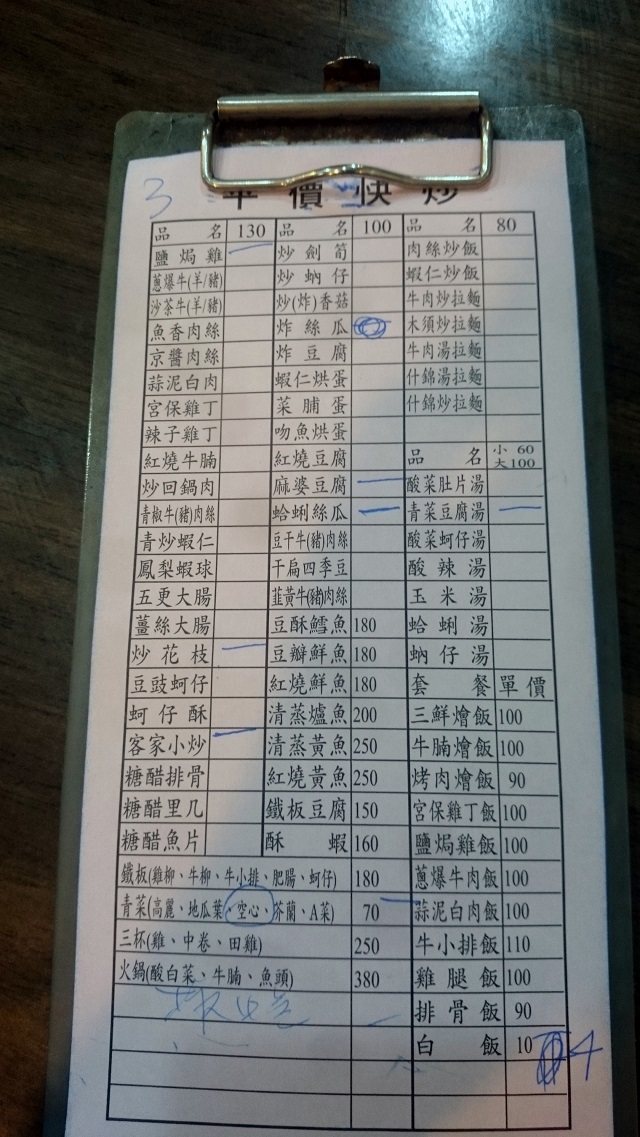 3
平價快炒
品 名 130 品 名 100 品 名 80
鹽焗雞 炒劍筍 肉絲炒飯
蔥爆牛(羊/豬) 炒蚋仔 蝦仁炒飯
沙茶牛(羊/豬) 炒(炸)香菇 牛肉炒拉麵
魚香肉絲 炸絲瓜 木須炒拉麵
京醬肉絲 炸豆腐 牛肉湯拉麵
蒜泥白肉 蝦仁烘蛋 什錦湯拉麵
宮保雞丁 菜脯蛋 什錦炒拉麵
辣子雞丁 吻魚烘蛋
紅燒牛腩 紅燒豆腐 品 名 小 60 大100
炒回鍋肉 麻婆豆腐 酸菜肚片湯
青椒牛(豬)肉絲 蛤蜊絲瓜 青菜豆腐湯
青炒蝦仁 豆干牛(豬)肉絲 酸菜蚵仔湯
鳳梨蝦球 干扁四季豆 酸辣湯
五更大腸 韮黃牛(豬)肉絲 玉米湯
薑絲大腸 豆酥鱈魚 180 蛤蜊湯
炒花枝 豆瓣鮮魚 180 蚋仔湯
豆豉蚵仔 紅燒鮮魚 180 套 餐 單價
蚵仔酥 清蒸爐魚 200 三鮮燴飯 100
客家小炒 清蒸黃魚 250 牛腩燴飯 100
糖醋排骨 紅燒黃魚 250 烤肉燴飯 90
糖醋里几 鐵板豆腐 150 宮保雞丁飯 100
糖醋魚片 酥 蝦 160 鹽焗雞飯 100
鐵板(雞柳、牛柳、牛小排、肥腸、蚵仔) 180 蔥爆牛肉飯 100
青菜(高麗、地瓜葉、空心、芥蘭、A菜) 70 蒜泥白肉飯 100
三杯(雞、中卷、田雞) 250 牛小排飯 110
火鍋(酸白菜、牛腩、魚頭) 380 雞腿飯 100
排骨飯 90
白 飯 10 4